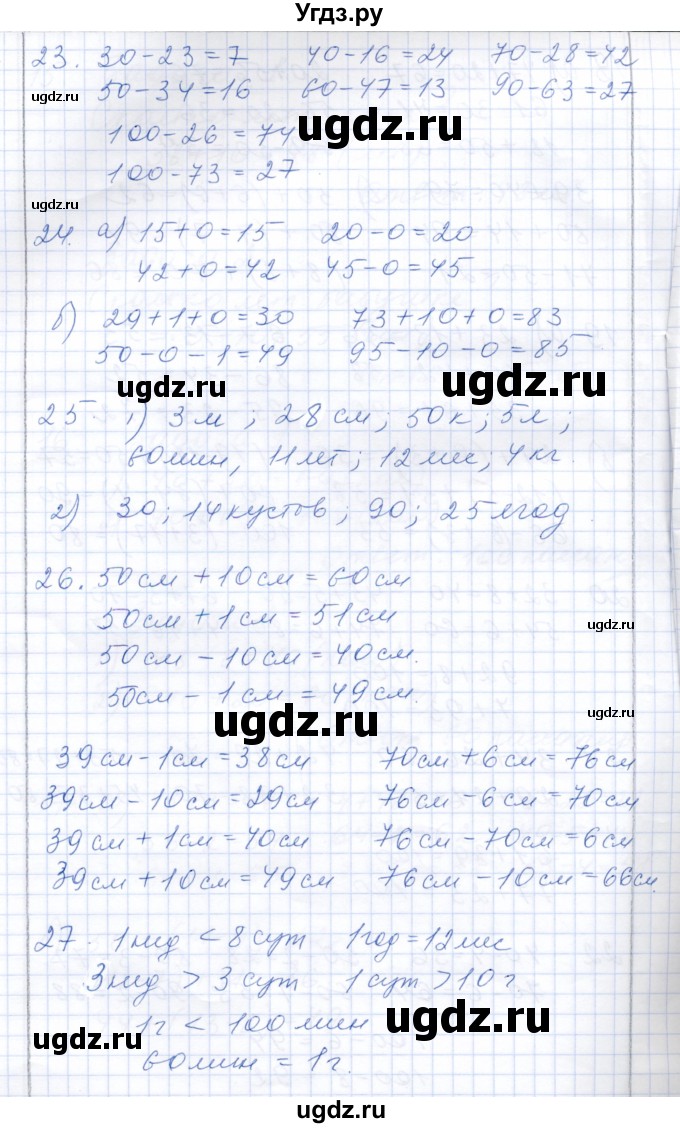 Угдз.ру
23. 30-23=7 40-16=24 70-28=42
50-34=16 60-47=13 90-63=27
ugdz.ru
100-26=74
ugdz.ru
100-73=27
ugdz.ru
24. а) 15+0=15 20-0=20
42+0=42 45-0=45
б) 29+1+0=30 73+10+0=83
50-0-1=49 95-10-0=85
ugdz.ru
ugdz.ru
25. 1) 3м; 28см; 50к; 5л;
60мин, 11лет; 12мес; 4кг
2) 30; 14кустов; 90; 25ягод
26. 50см+10см=60см
50см+1см=51см
ugdz.ru
50см-10см=40см.
50см-1см=49см.
ugdz.ru
ugdz.ru
39см-1см=38см 70см+6см=76см
39см-10см=29см 76см-6см=70см
39см+1см=40см 76см-70см=6см
39см+10см=49см 76см-10см=66см.
27. 1нед<8сут 1год=12мес
3нед>3сут 1сут>10г.
1г<100мин
ugdz.ru
ugdz.ru
60мин=1г.
ugdz.ru